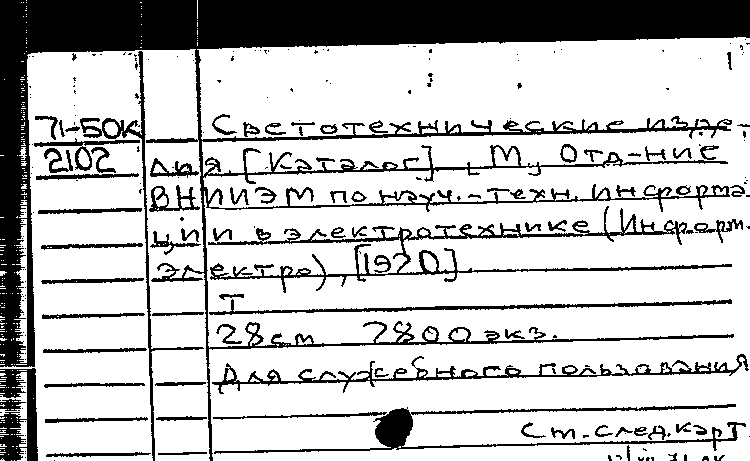 1
71-БОК Светотехнические изде-
2102 лия. [Каталог]. М., Отд-ние
ВНИИЭМ по науч.-техн. информа
ции в электротехнике (Информ.
электро), [1970].
Т
28 см 7800 экз.
Для служебного пользования
См. след. карт.